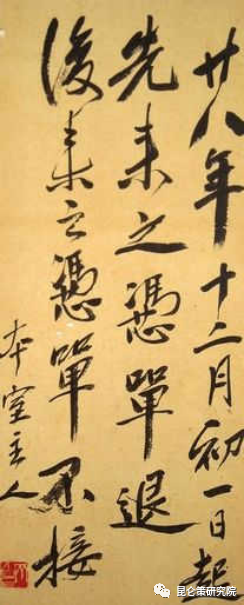 廿八年十二月初一日起
先来之憑單退
後来之憑單不接
本室主人
昆仑策研究院